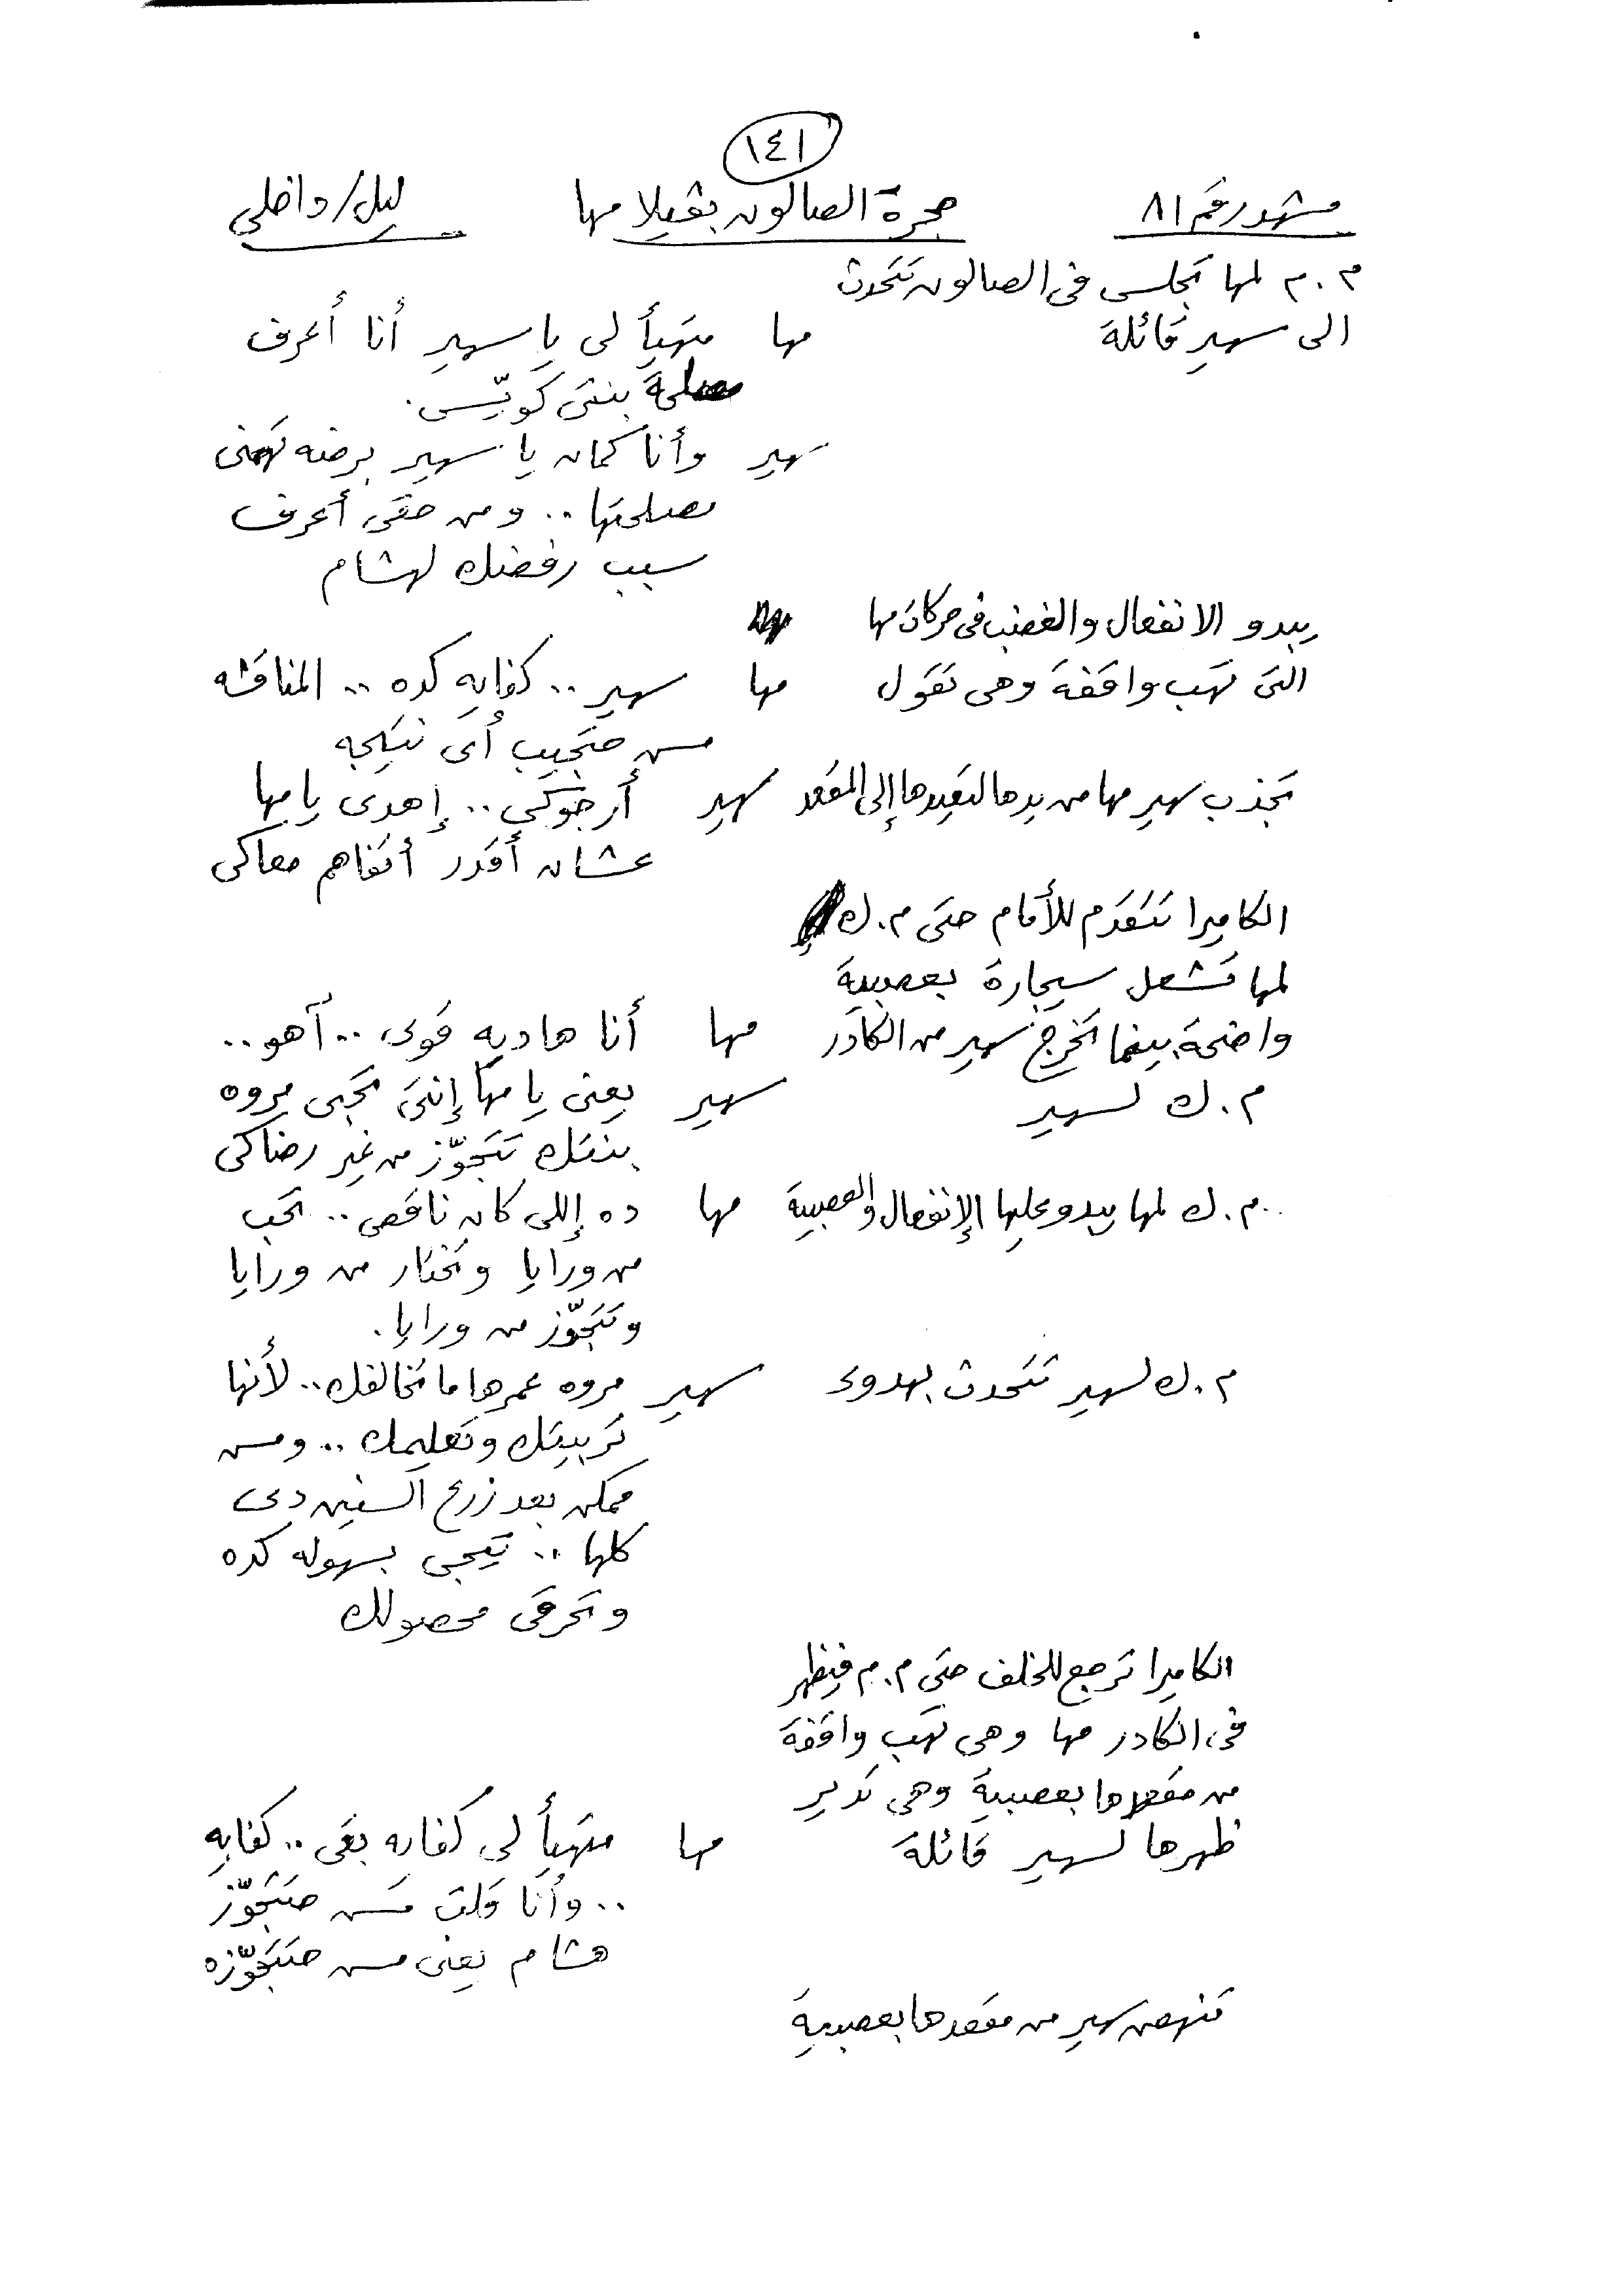 ١٤١
مشهد رقم ٨١ حجرة الصالون بڤيلا مها ليل/داخلى
م.م لمها تجلس فى الصالون تتحدث
الى سهير قائلة مها متهيأ لى يا سهير أنا أعرف
مصلحة بنتى كويّس.
سهير وأنا كمان يا سهير برضه تهمنى
مصلحتها.. ومن حقى أعرف
سبب رفضك لهشام
يبدو الانفعال والغضب فى حركات مها
التى تهب واقفة وهى تقول مها سهير.. كفايه كده.. المناقشه
مش حتجيب أى نتيجه
تجذب سهير مها من يدها لتعيدها إلى المقعد سهير أرجوكى.. إهدى يا مها
عشان أقدر أتفاهم معاكى
الكاميرا تتقدم للأمام حتى م.ك
لمها تشعل سيجارة بعصبية
واضحة بينما تخرج سهير من الكادر مها أنا هاديه قوى.. آهو..
م.ك لسهير سهير يعنى يا مها إنتى تحبى مروه
بنتك تتجوّز من غير رضاكى
م.ك لمها يبدو عليها الإنفعال والعصبية مها ده إللى كان ناقص.. تحب
من ورايا وتختار من ورايا
وتتجوّز من ورايا.
م.ك لسهير تتحدث بهدوء سهير مروه عمرها ما تخالفك.. لأنها
تربيتك وتعليمك.. ومش
ممكن بعد زرع السنين دى
كلها.. تيجى بسهوله كده
وتحرقى محصولك
الكاميرا ترجع للخلف حتى م.م فيظهر
فى الكادر مها وهى تهب واقفة
من مقعدها بعصبية وهى تدير
ظهرها لسهير قائلة مها متهيأ لى كفايه بقى.. كفايه
..وأنا قلت مش حتتجوّز
هشام يعنى مش حتتجوّزه
تنهض سهير من مقعدها بعصبية